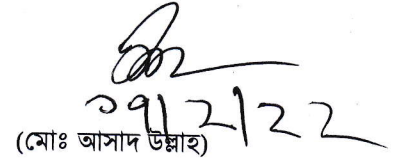 ০৭/২/২২
(মোঃ আসাদ উল্লাহ)